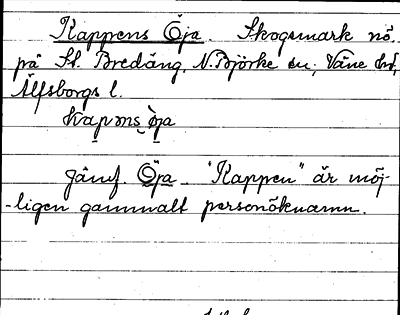 Kappens Öja. Skogsmark nö.
på St. Bredäng, N. Björke sn; Väne hd,
Älfsborgs l.
kapəns öja
Jämf. Öja. "Kappen" är möj-
-ligen gammalt personöknamn.